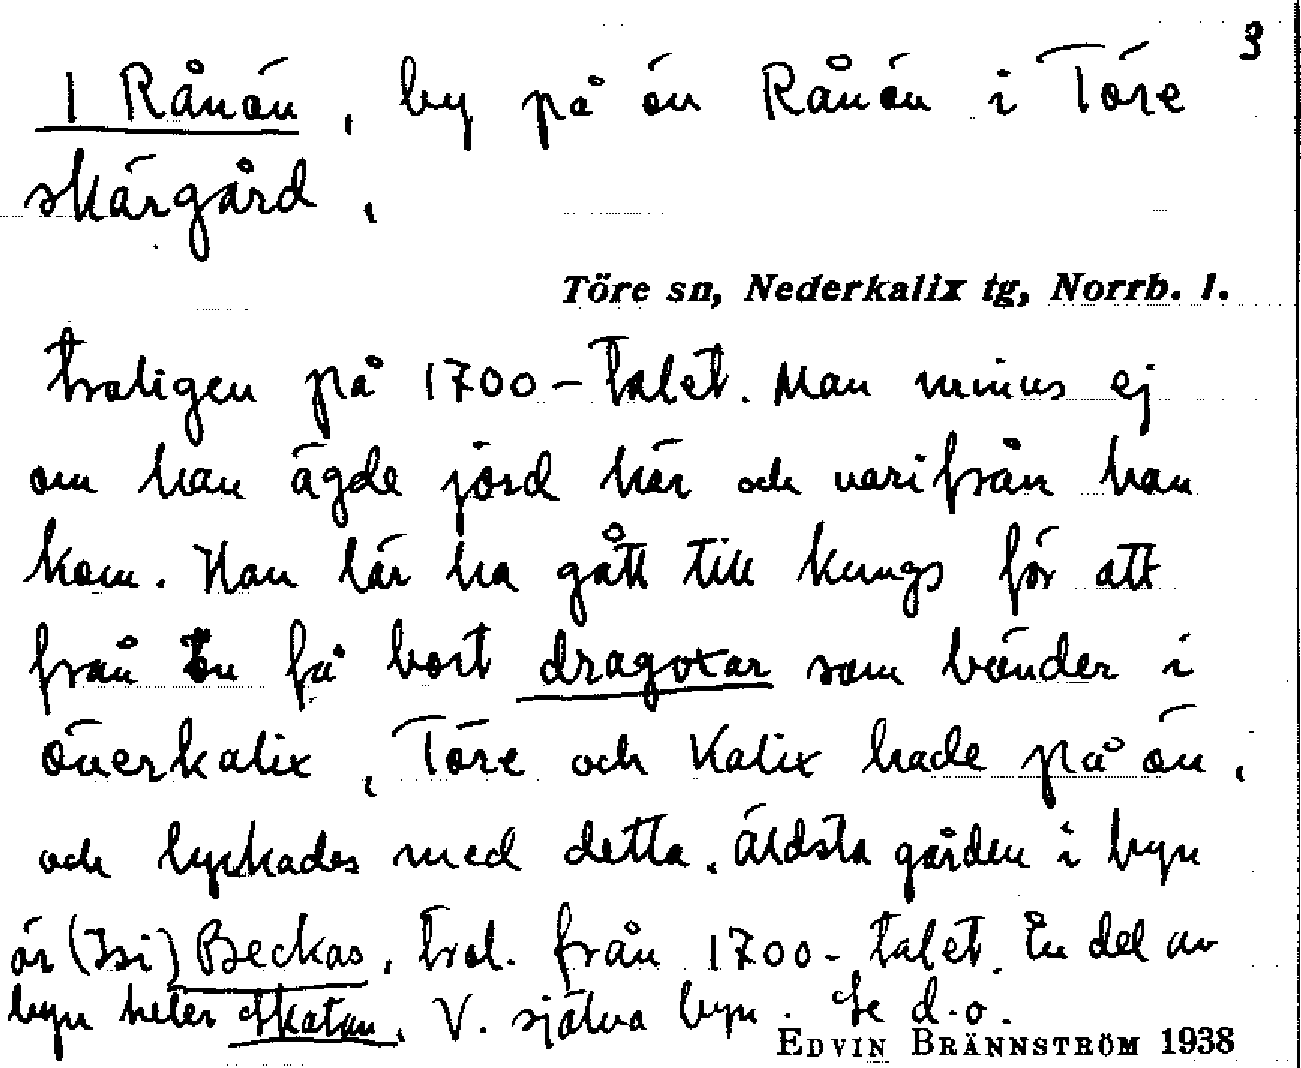 3
1 Rånön, by på ön Rånön i Töre
skärgård,
Töre sn, Nederkalix tg, Norrb. l.
troligen på 1700-talet. Man minns ej
om han ägde jord här och varifrån han
kom. Han lär ha gått till kungs för att
från ön få bort dragoxar som bönder i
Överkalix, Töre och Kalix hade på ön,
och lyckades med detta. Äldsta gården i byn
är (Isi) Beckas, trol. från 1700-talet. En del av
byn heter Skatan, V. själva byn. Se d.o.
EDVIN BRÄNNSTRÖM 1938